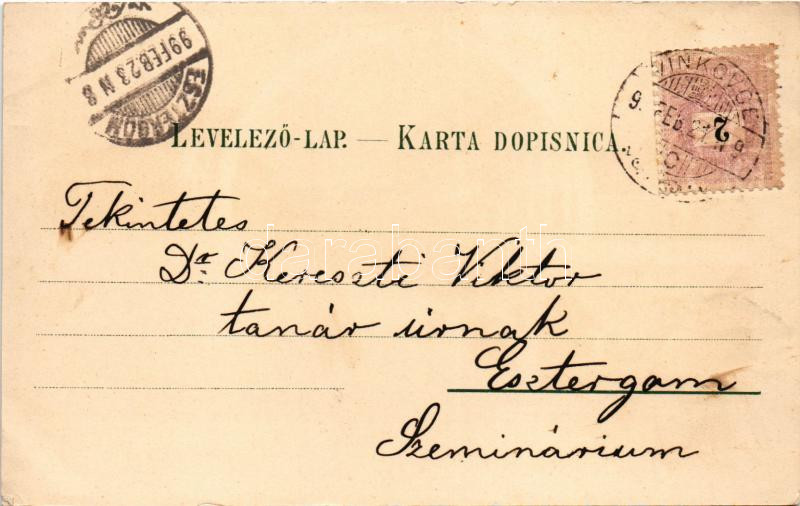 99 FEB. 23 N 8
ESZTERGOM
LEVELEZŐ-LAP. — KARTA DOPISNICA.
VINKOVCE
2
Tekintetes
Dr. Kereszti Viktor
tanár úrnak
Esztergam
Szeminárium
darabanth